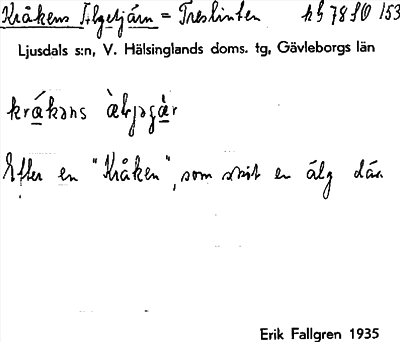 Kråkens Älgetjärn = Treslinten hS 7850 153
Ljusdals s:n, V. Hälsinglands doms. tg, Gävleborgs län
Efter en "Kråken", som skit en älg där.
Erik Fallgren 1935